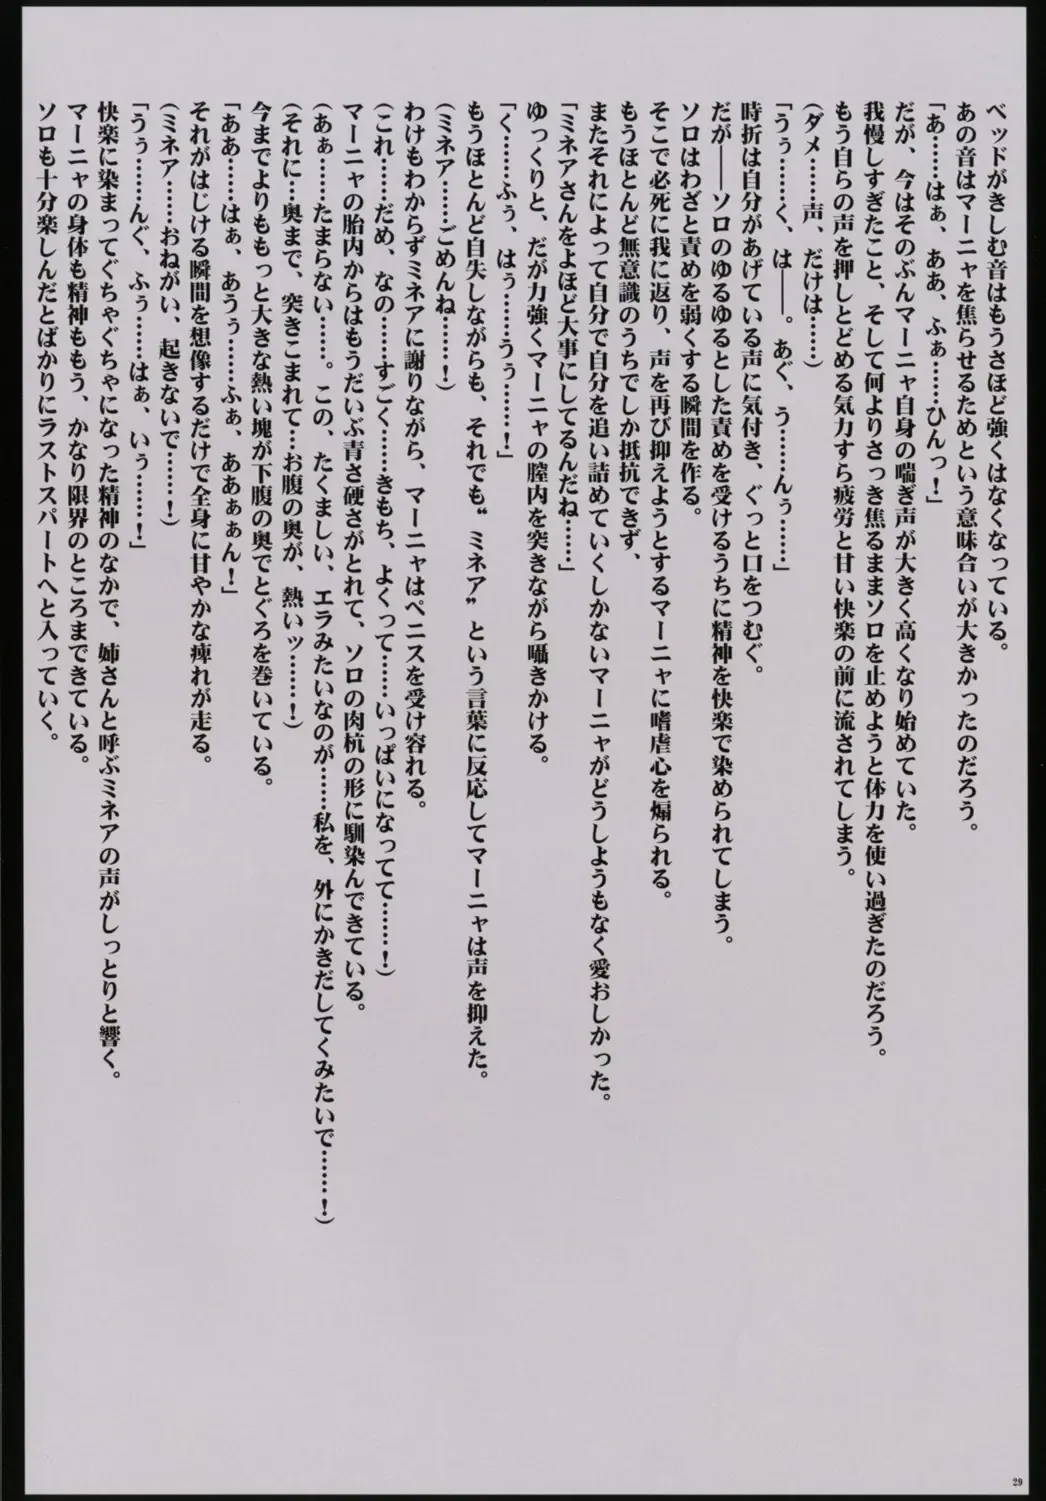 ベッドがきしむ音はもうさほど強くはなくなっている。
あの音はマーニャを焦らせるためという意味合いが大きかったのだろう。
「あ……はぁ、ああ、ふぁ……ひんっ！」
だが、今はそのぶんマーニャ自身の喘ぎ声が大きく高くなり始めていた。
我慢しすぎたこと、そして何よりさっき焦るままソロを止めようと体力を使い過ぎたのだろう。
もう自らの声を押しとどめる気力すら疲労と甘い快楽の前に流されてしまう。
（ダメ……声、だけは……）
「うぅ……く、は――。あぐ、う……んぅ……」
時折は自分があげている声に気付き、ぐっと口をつむぐ。
だが――ソロのゆるゆるとした責めを受けるうちに精神を快楽で染められてしまう。
ソロはわざと責めを弱くする瞬間を作る。
そこで必死に我に返り、声を再び抑えようとするマーニャに嗜虐心を煽られる。
もうほとんど無意識のうちでしか抵抗できず、
またそれによって自分で自分を追い詰めていくしかないマーニャがどうしようもなく愛おしかった。
「ミネアさんをよほど大事にしてるんだね……」
ゆっくりと、だが力強くマーニャの膣内を突きながら囁きかける。
「く……ふぅ、はぅ……うぅ……！」
もうほとんど自失しながらも、それでも“ミネア”という言葉に反応してマーニャは声を抑えた。
（ミネア……ごめんね……！）
わけもわからずミネアに謝りながら、マーニャはペニスを受け容れる。
（これ……だめ、なの……すごく……きもち、よくって……いっぱいになってて……！）
マーニャの胎内からはもうだいぶ青さ硬さがとれて、ソロの肉杭の形に馴染んできている。
（あぁ……たまらない……。この、たくましい、エラみたいなのが……私を、外にかきだしてくみたいで……！）
（それに…奥まで、突きこまれて…お腹の奥が、熱いッ……！）
今までよりももっと大きな熱い塊が下腹の奥でとぐろを巻いている。
「ああ……はぁ、あうぅ……ふぁ、ああぁぁん！」
それがはじける瞬間を想像するだけで全身に甘やかな痺れが走る。
（ミネア……おねがい、起きないで……！）
「うぅ……んぐ、ふぅ……はぁ、いぅ……！」
快楽に染まってぐちゃぐちゃになった精神のなかで、姉さんと呼ぶミネアの声がしっとりと響く。
マーニャの身体も精神ももう、かなり限界のところまできている。
ソロも十分楽しんだとばかりにラストスパートへと入っていく。
29